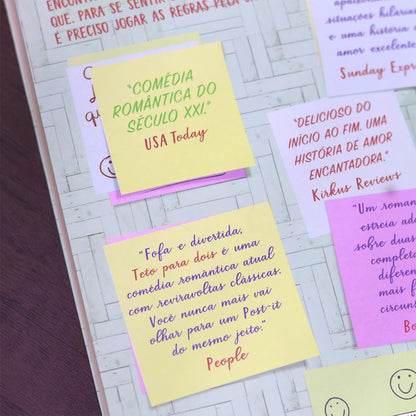 ENCONTRA
QUE, PARA SE SENTIR
É PRECISO JOGAR AS REGRAS PELA
situações hilária
e uma história
amor excelente
Sunday Expre
"COMÉDIA
ROMÂNTICA DO
SÉCULO XXI."
USA Today
"DELICIOSO DO
INÍCIO AO FIM. UMA
HISTÓRIA DE AMOR
ENCANTADORA."
Kirkus Reviews
"Fofa e divertida,
Teto para dois é uma
comédia romântica atual
com reviravoltas clássicas.
Você nunca mais vai
olhar para um Post-it
do mesmo jeito."
People
"Um roman
estreia adi
sobre dua
complet
difere
mais f
circuns
Bo